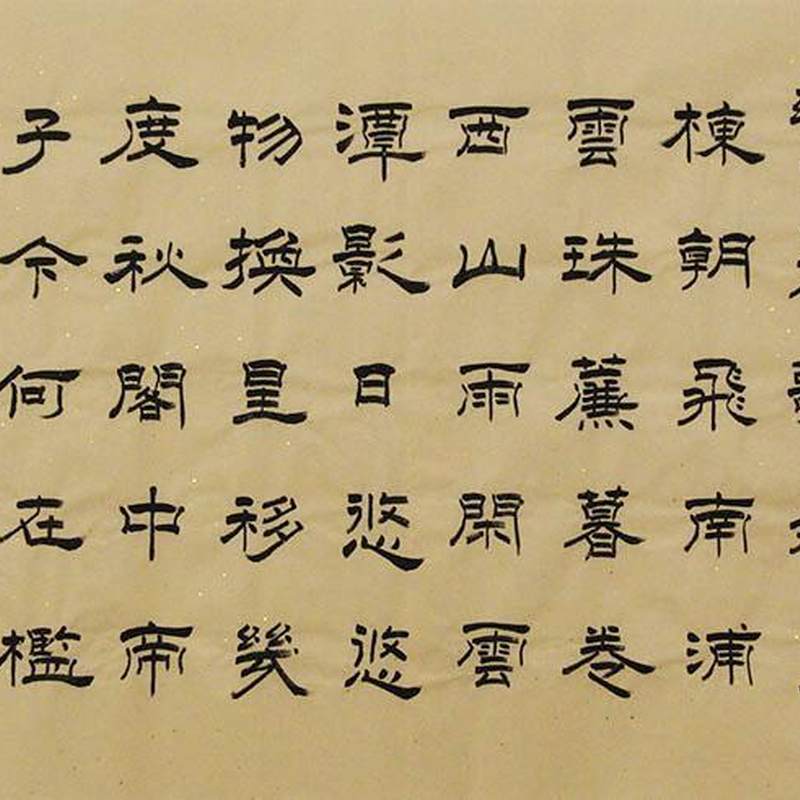 棟朝飛南浦
雲珠簾暮卷
西山雨閑雲
潭影日悠悠
物換星移幾
度秋閣中帝
子今何在檻